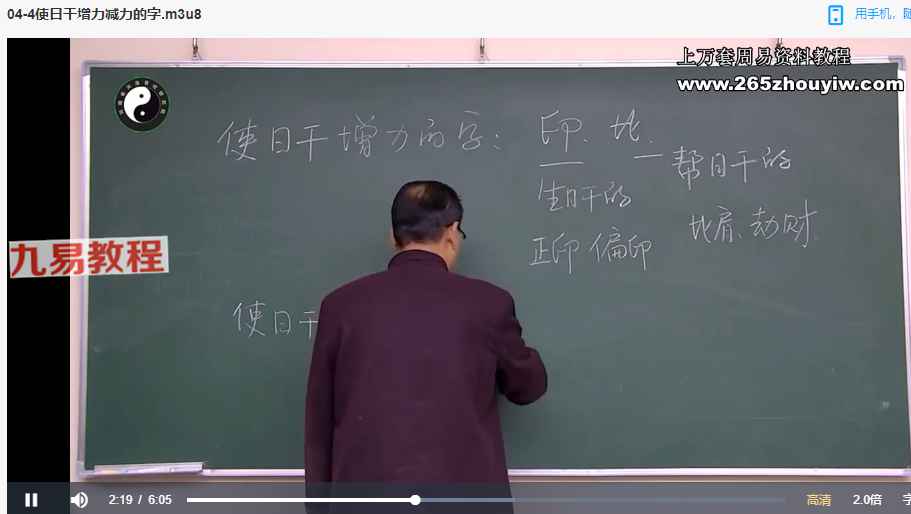 04-4使日干增力减力的字.m3u8
用手机，随
上万套周易资料教程
www.265zhouyiw.com
使日干增力的字：印．比．
帮日干的
生日干的
比肩、劫财
正印 偏印
九易教程
使日干
2:19 / 6:05
高清
2.0倍
字